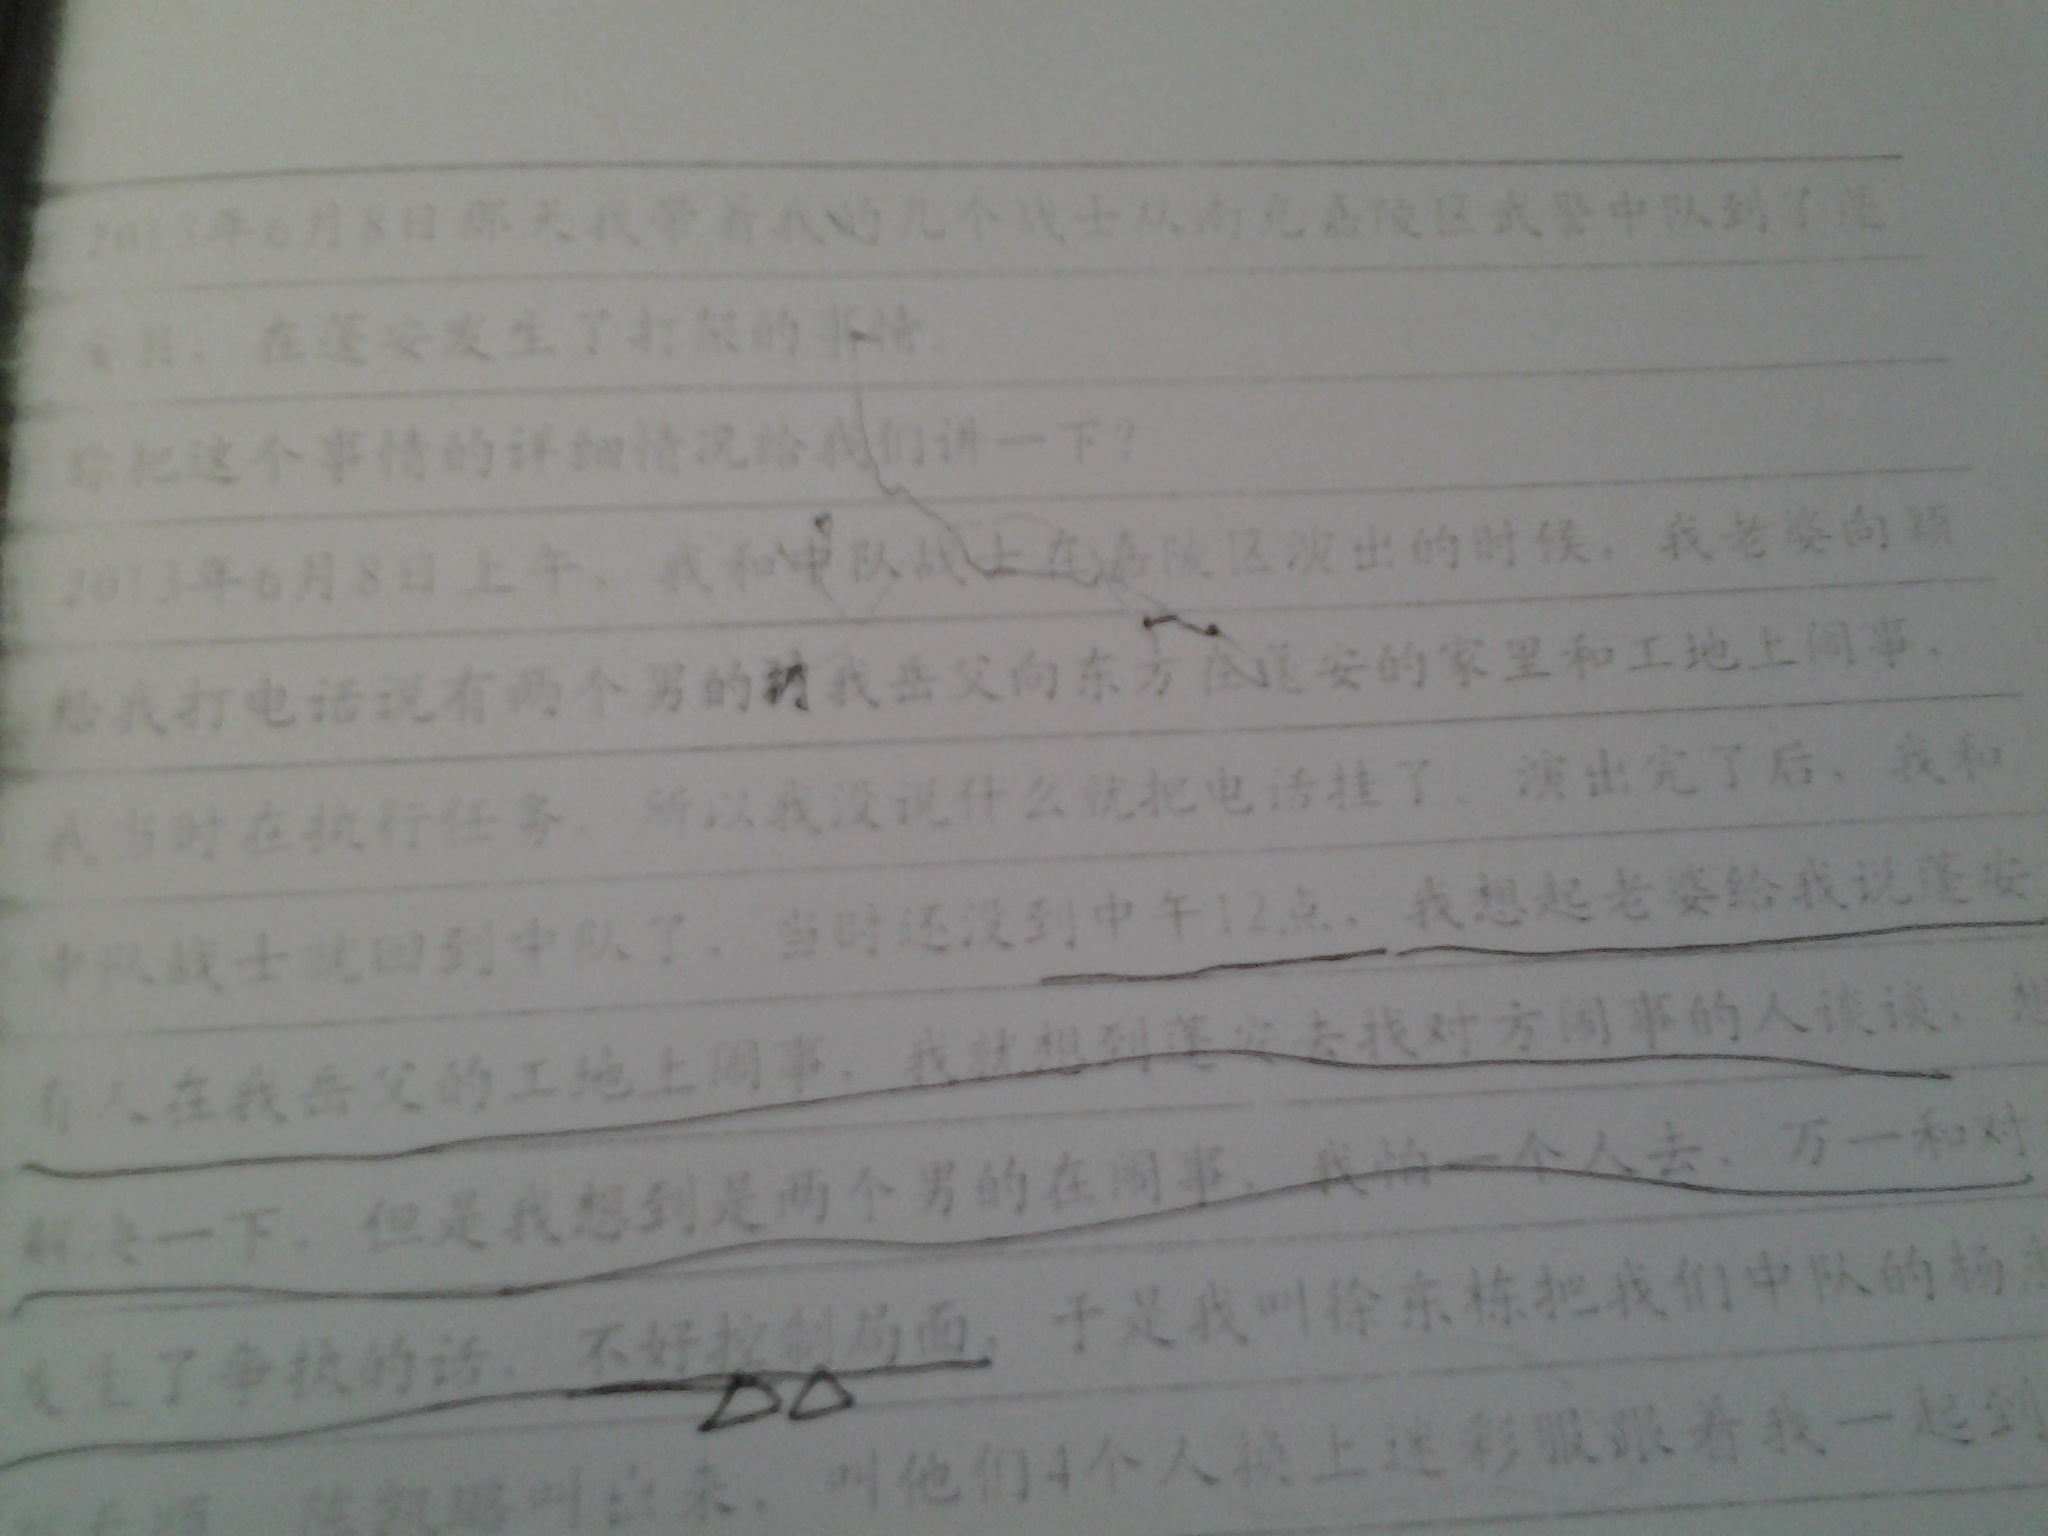 2013年6月8日那天我带着我的几个战士从南充嘉陵区武警中队到了蓬
安县，在蓬安发生了打架的事情。
你把这个事情的详细情况给我们讲一下？
2013年6月8日上午，我和中队战士在嘉陵区演出的时候，我老婆向颖
给我打电话说有两个男的 我岳父向东方在蓬安的家里和工地上闹事，
我当时在执行任务，所以我没说什么就把电话挂了。演出完了后，我和
中队战士就回到中队了，当时还没到中午12点，我想起老婆给我说蓬安
有人在我岳父的工地上闹事，我就想到蓬安去找对方闹事的人谈谈，想
解决一下，但是我想到是两个男的在闹事，我怕一个人去，万一和对
发生了争执的话，不好控制局面，于是我叫徐东栋把我们中队的杨
叫出来，叫他们4个人换上迷彩服跟着我一起到